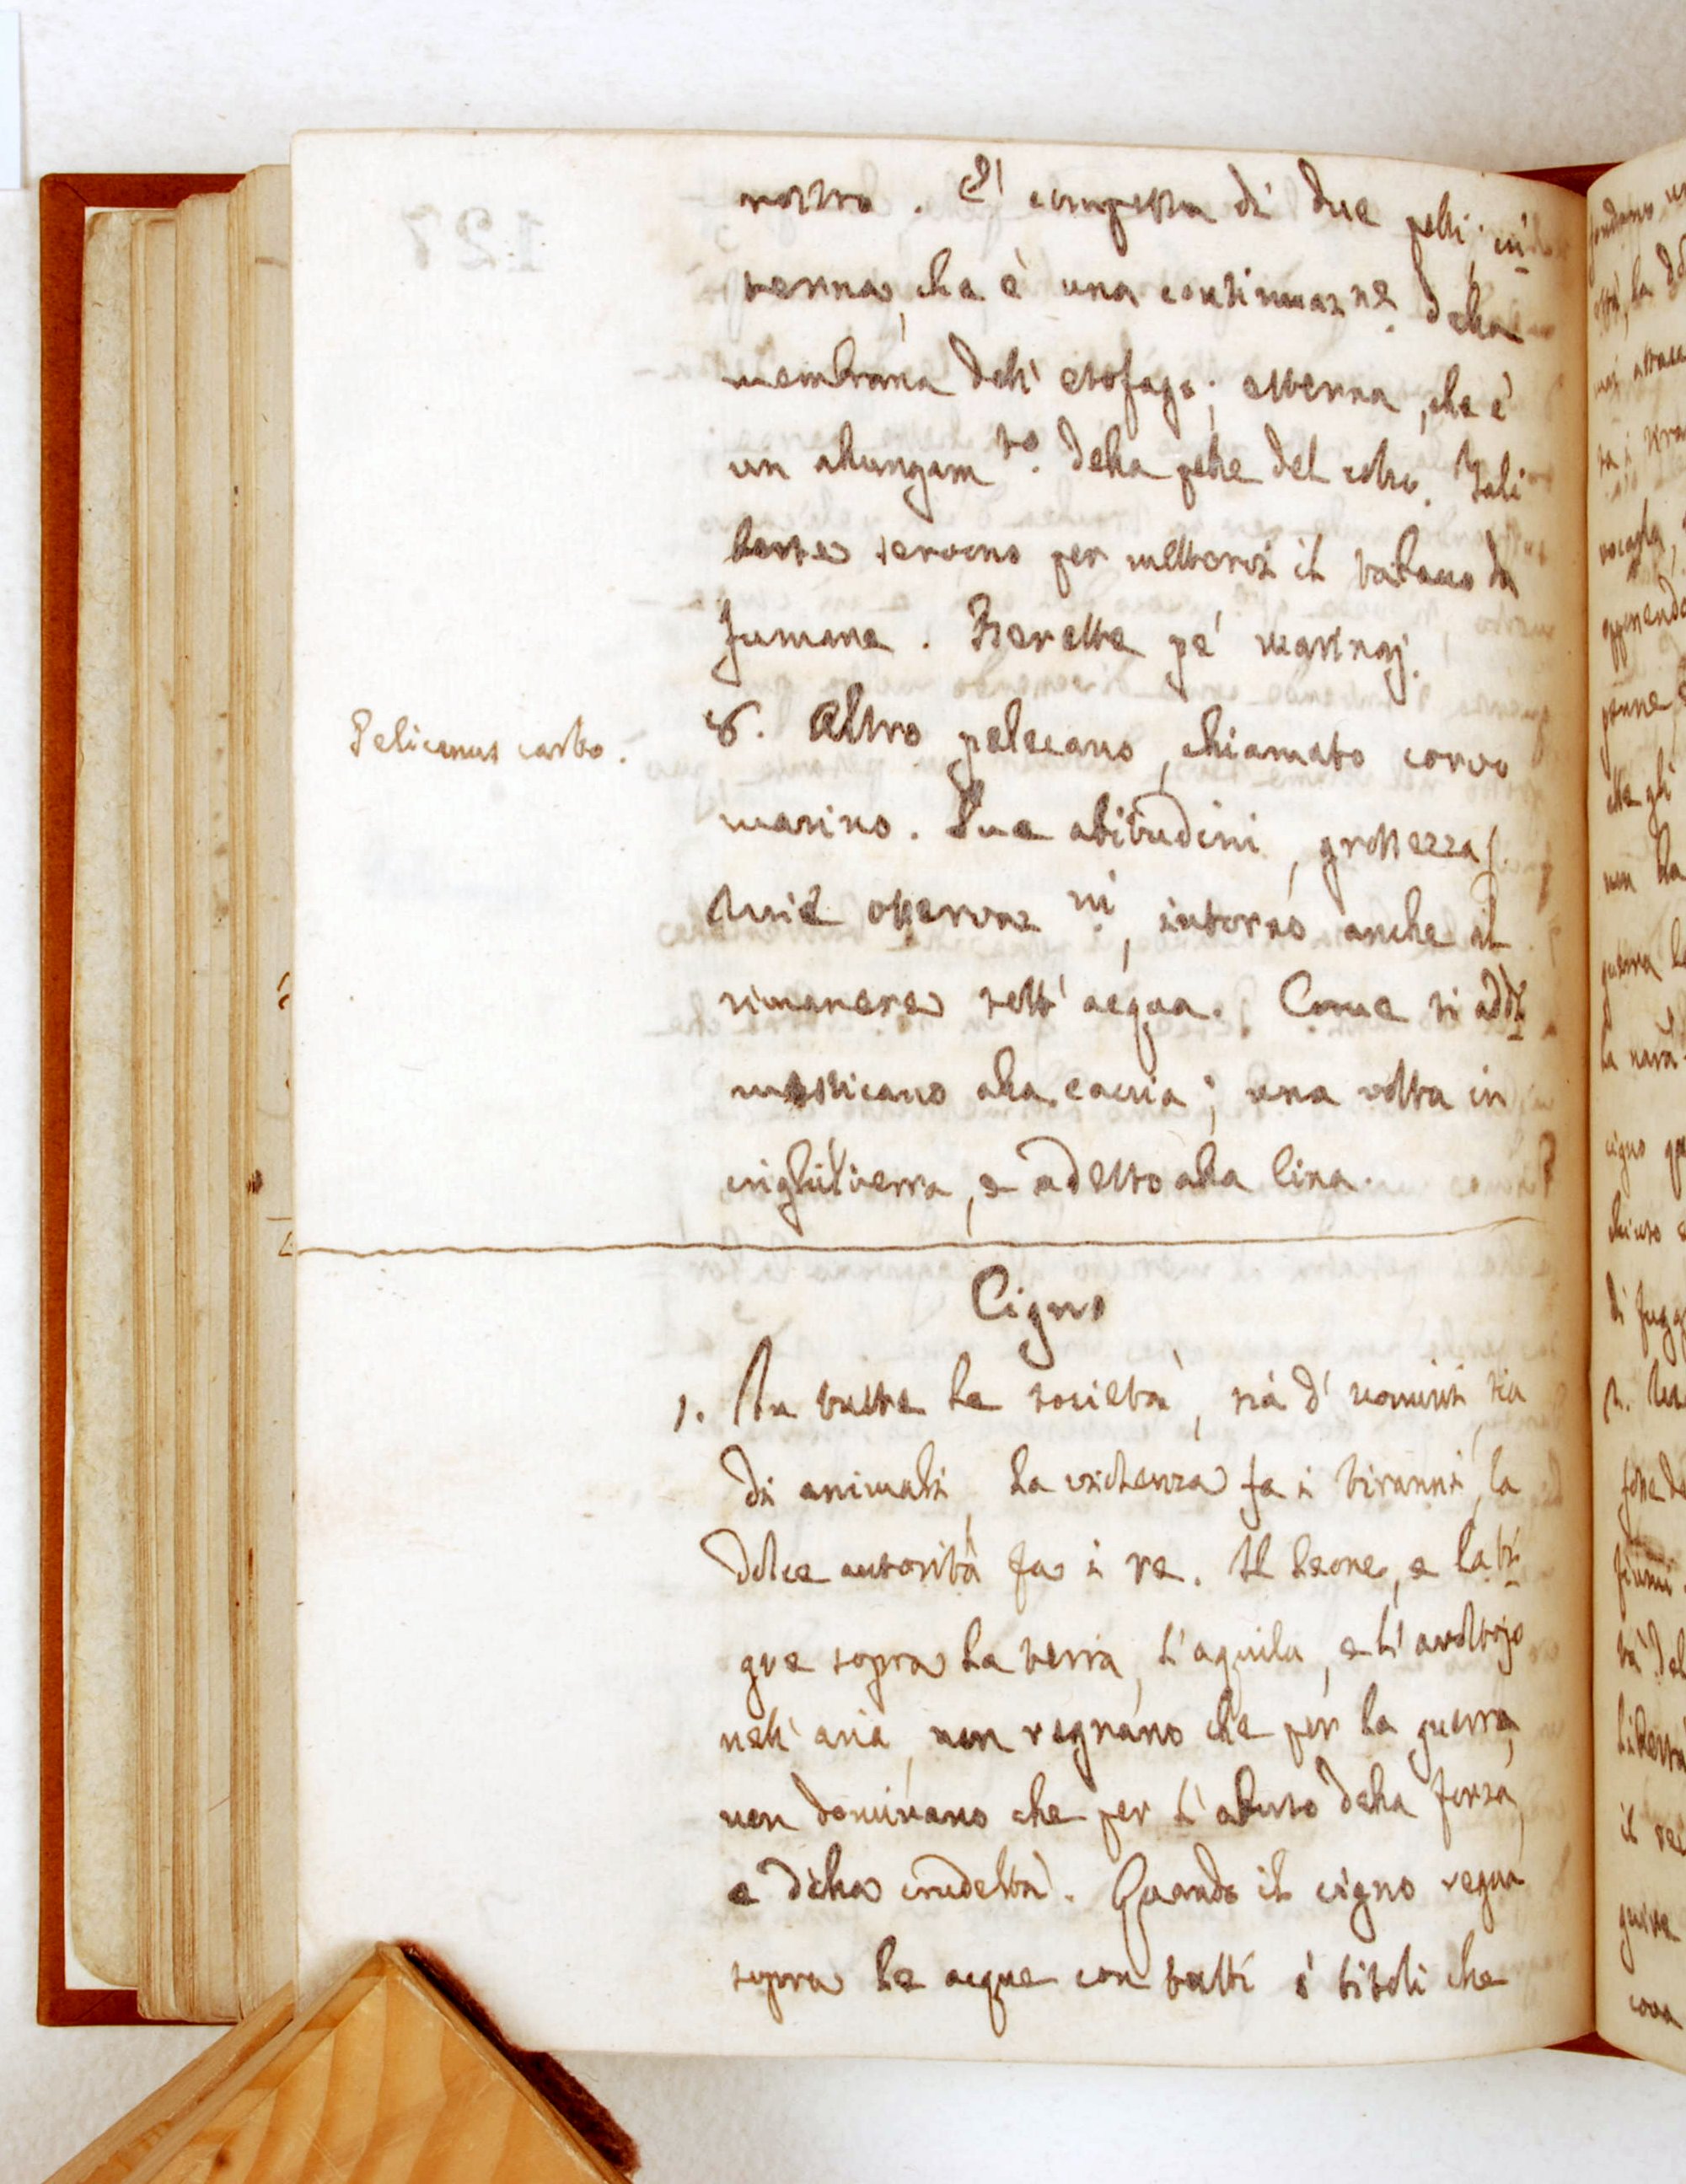 rostro. E' composta di due pelli; in-
terna, che è una continuaz.ne della
membrana dell' esofago; esterna, che è
un allungam.to della pelle del collo. Tali
borse servono per mettervi il tabacco da
fumare. Berette pe' marinaj.
Pelicanus carbo.
8. Altro pelecano, chiamato corvo
marino. Sue abitudini, grossezza.
Mie osservaz.ni, intorno anche il
rimanere sott' acqua. Come si addi-
mesticano alla caccia; una volta in
inghilterra, e adesso alla Cina.
Cigno
1. In tutte le società, sia d' uomini, sia
di animali, la violenza fa i tiranni, la
dolce autorità fa i re. Il leone, e la ti-
gre sopra la terra, l' aquila, e l' avoltojo
nell' aria, non regnano che per la guerra,
non dominano che per l' abuso della forza,
e della crudeltà. Quando il cigno regna
sopra le acque con tutti i titoli che